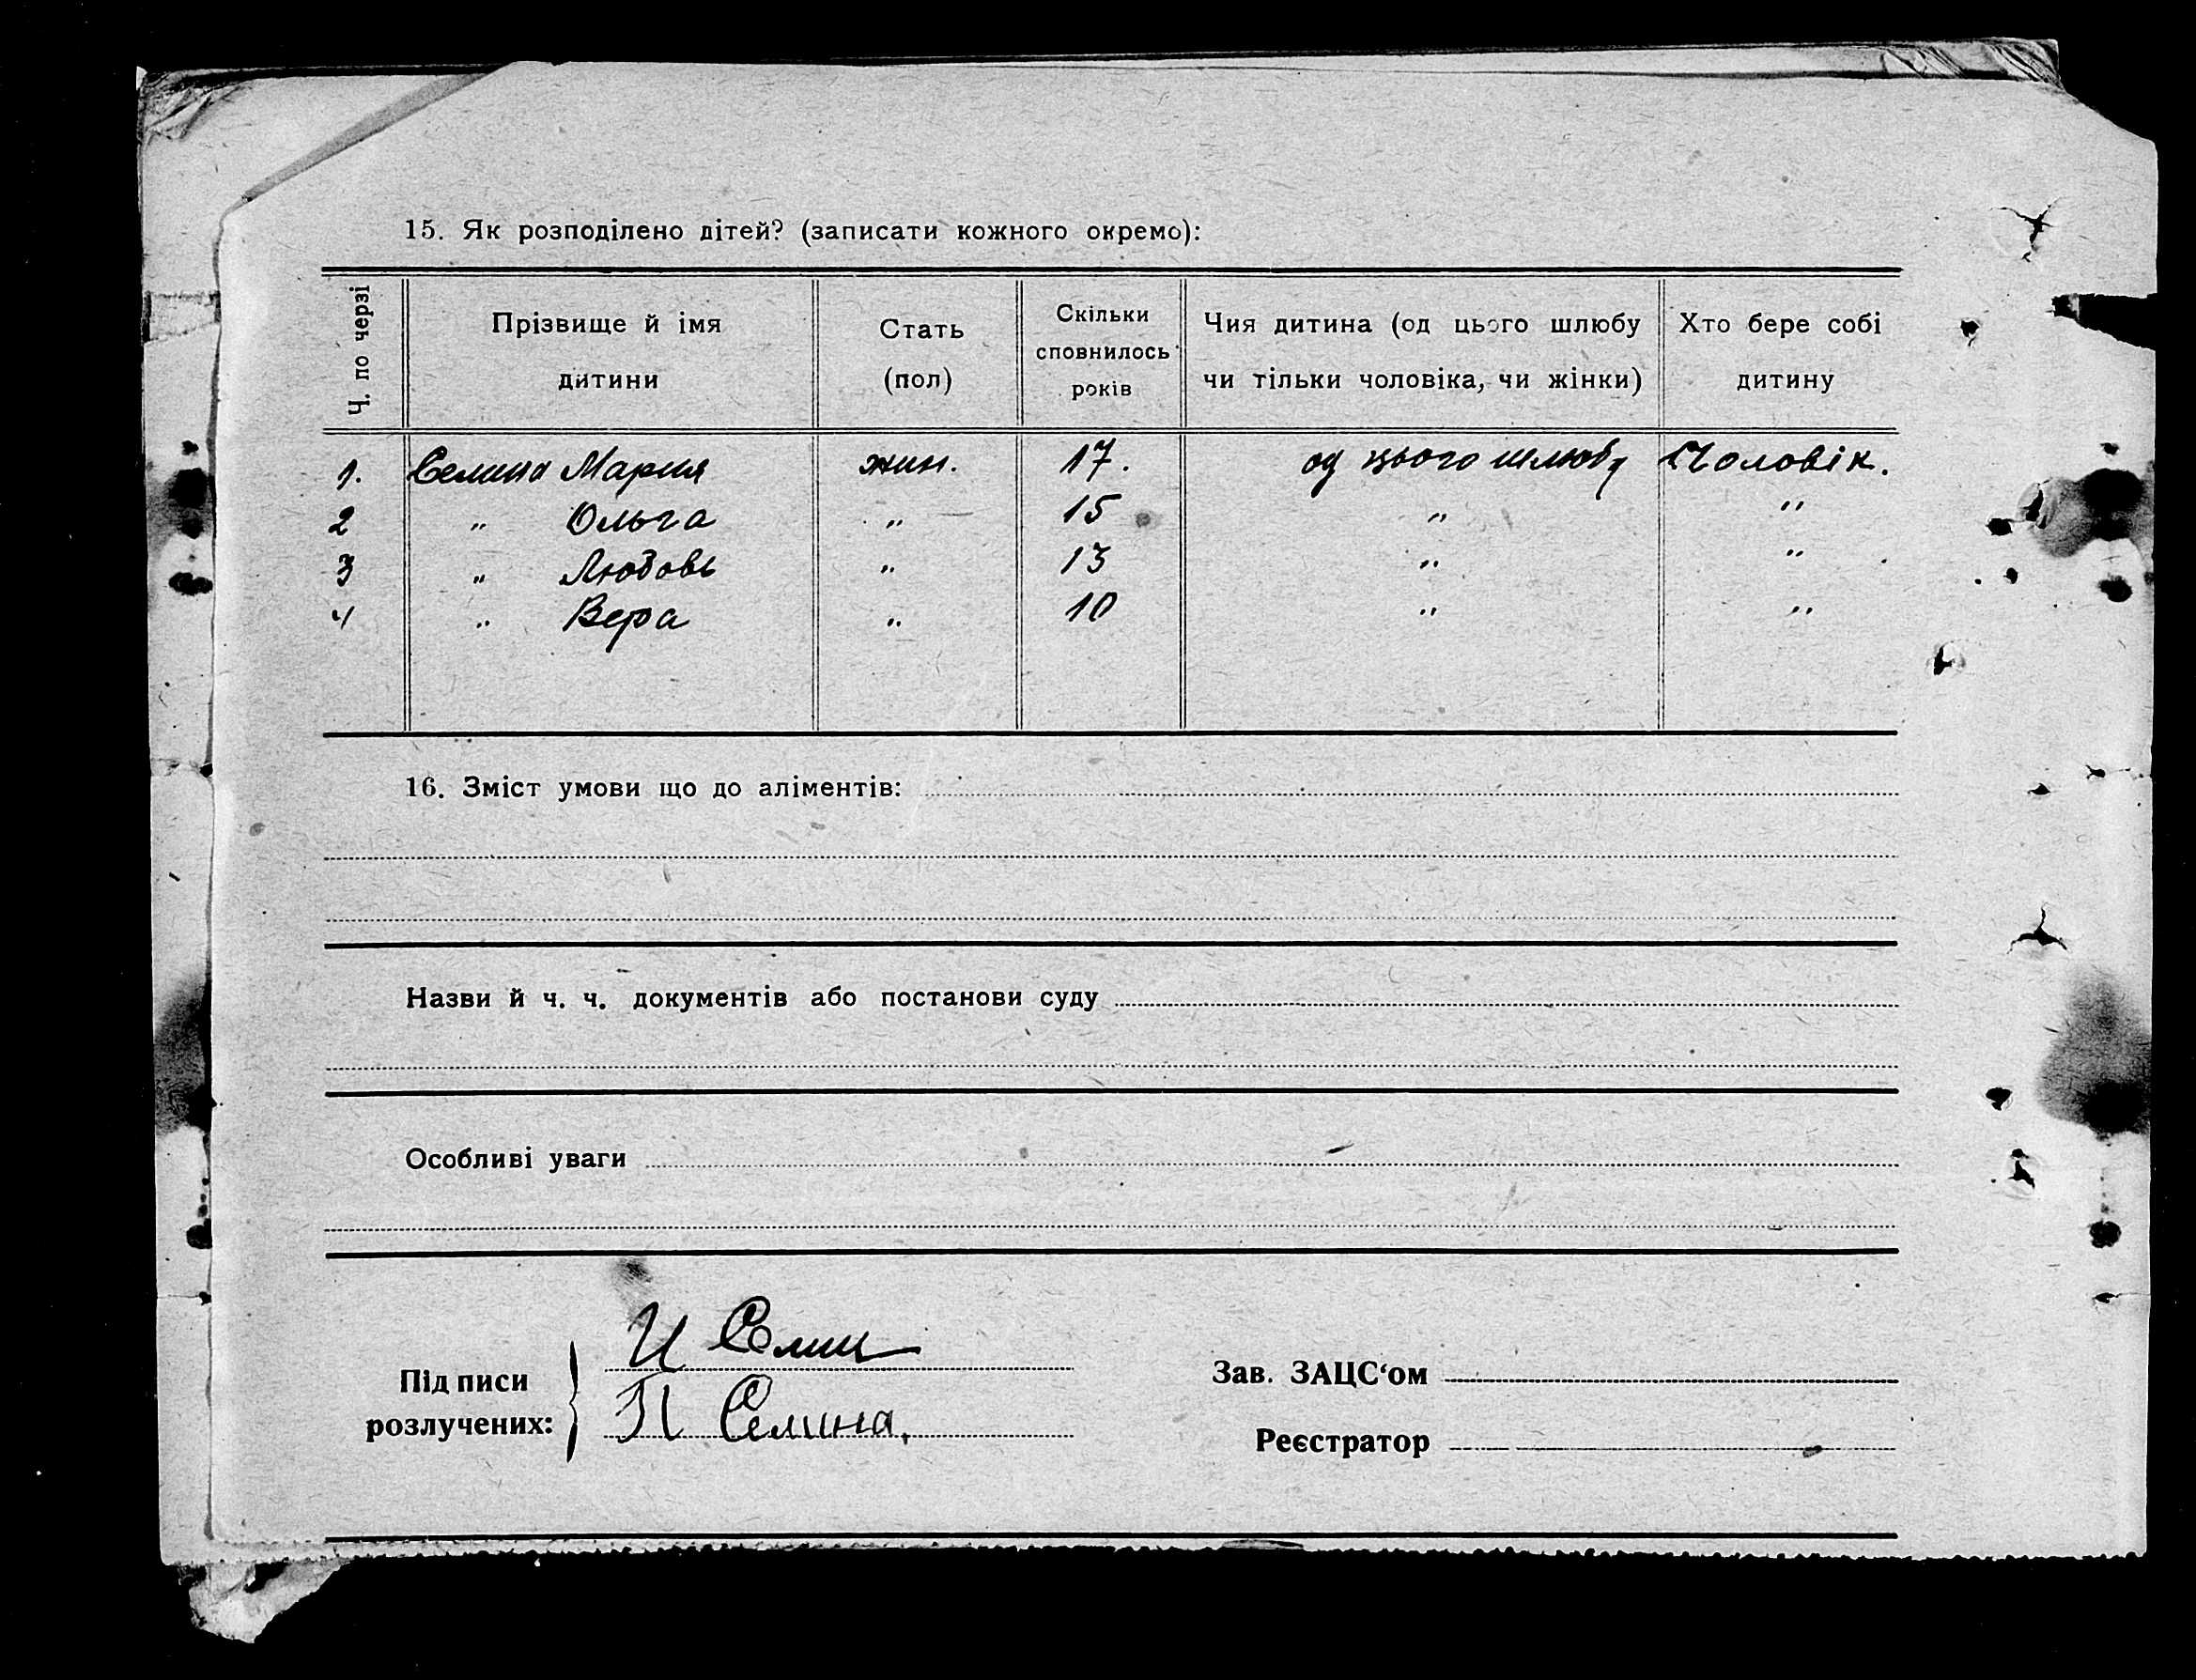 15. Як розподілено дітей? (записати кожного окремо):
Ч. по черзі | Прізвище й імя дитини | Стать (пол) | Скільки сповнилось років | Чия дитина (од цього шлюбу чи тільки чоловіка, чи жінки) | Хто бере собі дитину
1. Селина Мария жин. 17. од цього шлюбу Чоловік.
2 " Ольга " 15 " "
3 " Любовь " 13 " "
4 " Вера " 10 " "
16. Зміст умови що до аліментів:
Назви й ч. ч. документів або постанови суду
Особливі уваги
Підписи розлучених:
И Селин
П Селина,
Зав. ЗАЦС‘ом
Реєстратор